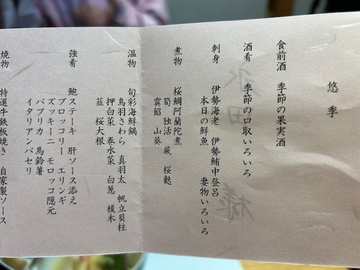 悠季
食前酒 季節の果実酒
酒肴 季節の口取いろいろ
刺身 伊勢海老 伊勢鮪中登呂
本日の鮮魚 妻物いろいろ
煮物 桜鯛阿蘭陀煮
筍 独活 蕨 桜麩
雲餡 山葵
温物 旬彩海鮮鍋
鳥羽さわら 真羽太 帆立貝柱
押白菜 春水菜 白葱 榎木
韮 桜大根
強肴 鮑ステーキ 肝ソース添え
ブロッコリー エリンギ
ズッキーニ モロッコ隠元
パプリカ 馬鈴薯
イタリアンパセリ
焼物 特選牛鉄板焼き 自家製ソース